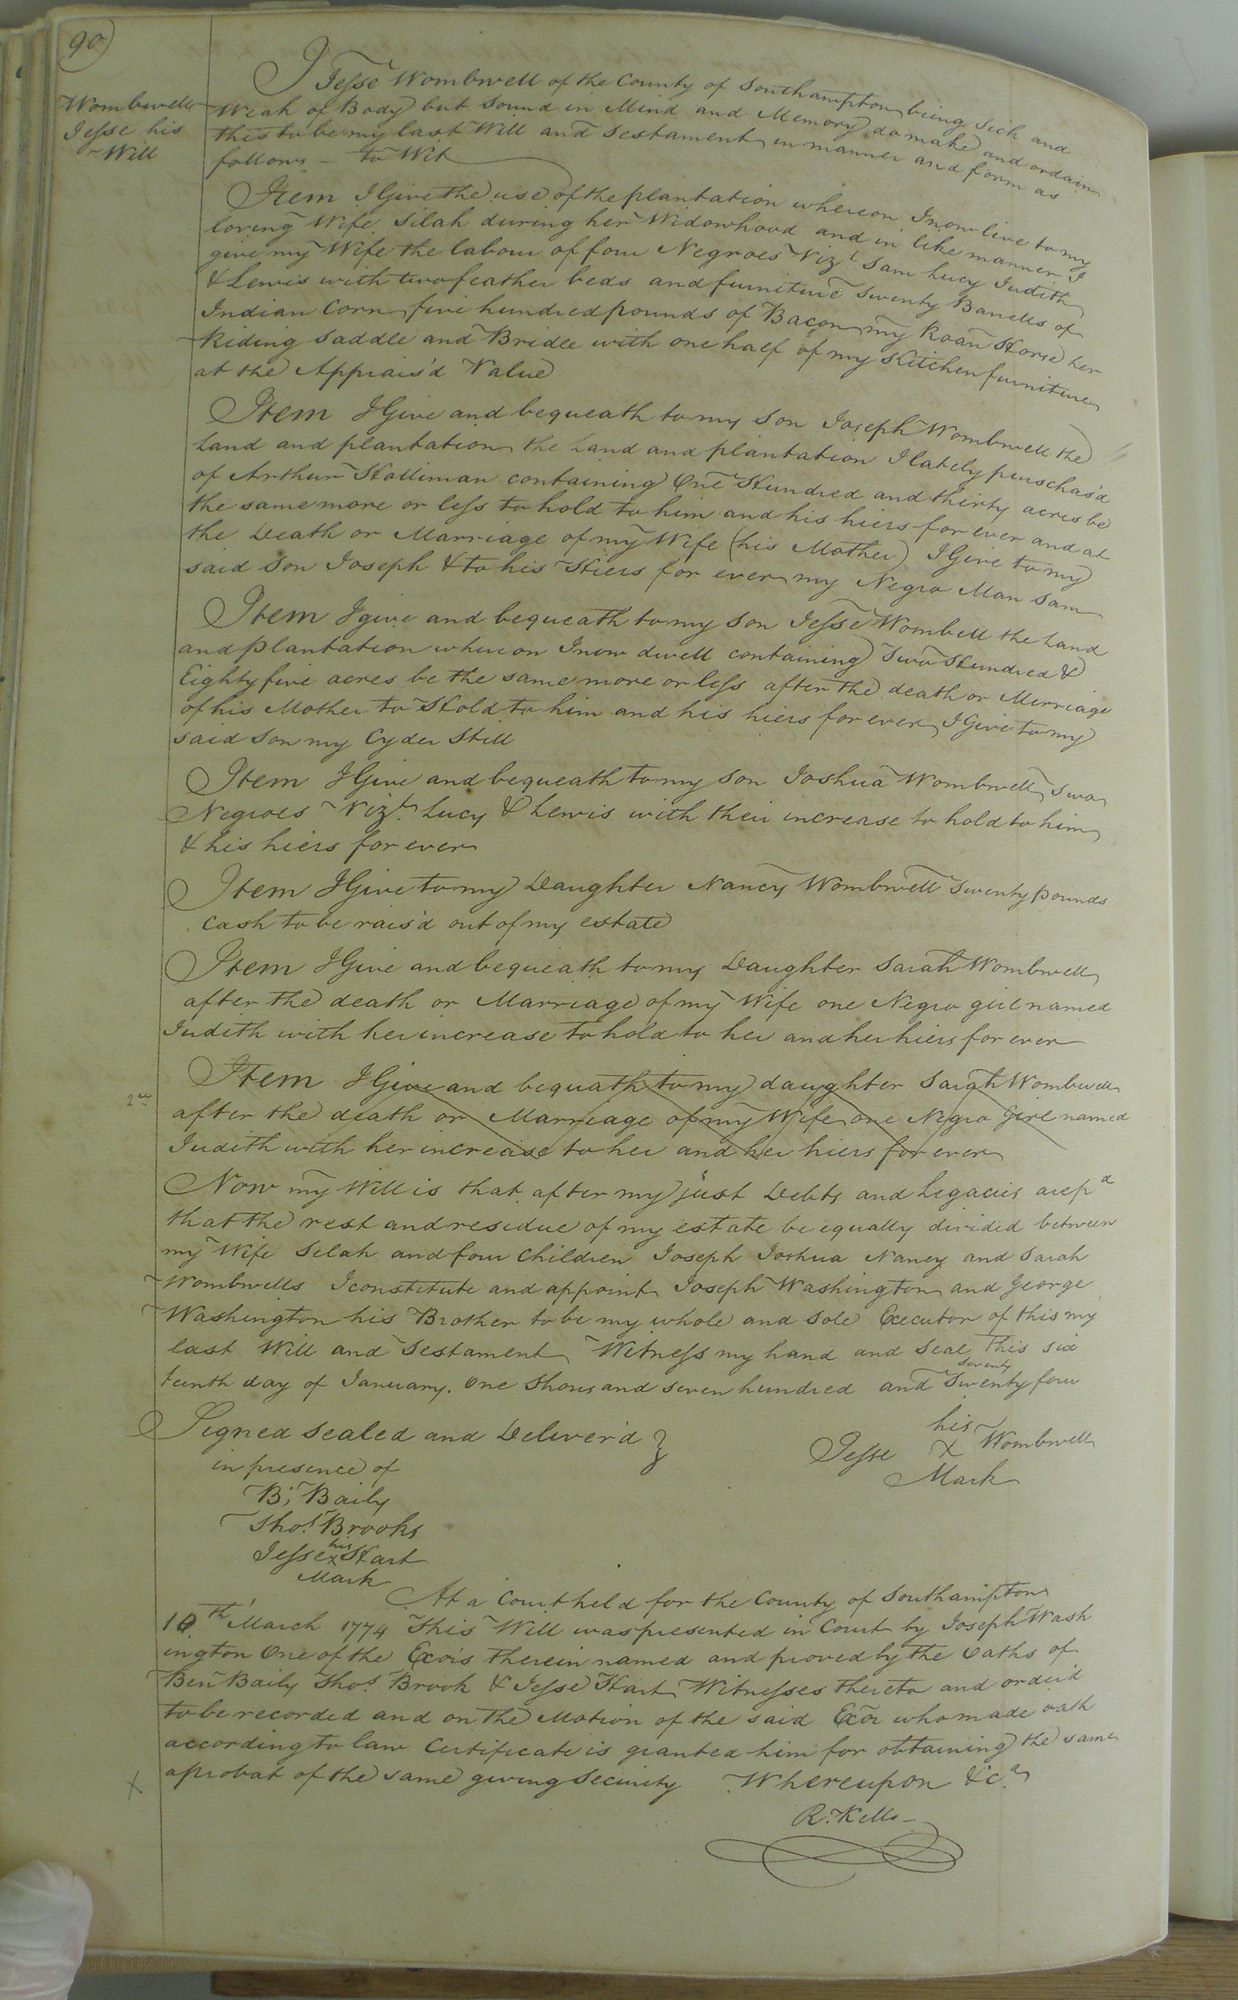 90
Wombwells
Jesse his
Will
I Jesse Wombwell of the County of Southampton being Sick and
Weak of Body but Sound in Mind and Memory do make and ordain
this to be my last Will and Testament in manner and form as
follows – to Wit
Item I Give the use of the plantation whereon I now live to my
loving Wife Silah during her Widowhood and in like manner I
give my Wife the labour of four Negroes Vizt. Sam Lucy Judith
& Lewis with two feather beds and furniture Twenty Barrells of
Indian Corn five hundred pounds of Bacon my Roan Horse her
Riding Saddle and Bridle with one half of my Kitchen furniture
at the Apprais'd Value
Item I Give and bequeath to my Son Joseph Wombwell the
Land and plantation the Land and plantation I lately purchas'd
of Arthur Holliman containing One Hundred and thirty acres be
the same more or less to hold to him and his hiers for ever and at
the Death or Marriage of my Wife (his Mother) I Give to my
said Son Joseph & to his Hiers for ever my Negro Man Sam
Item I give and bequeath to my Son Jesse Wombell the Land
and plantation whereon I now dwell containing Two Hundred &
Eighty five acres be the same more or less after the death or Merriage
of his Mother to Hold to him and his hiers for ever I Give to my
said Son my Cyder Still
Item I Give and bequeath to my Son Joshua Wombwell Two
Negroes Vizt. Lucy & Lewis with their increase to hold to him
& his hiers for ever
Item I Give to my Daughter Nancy Wombwell Twenty pounds
Cash to be rais'd out of my estate
Item I Give and bequeath to my Daughter Sarah Wombwell
after the death or Marriage of my Wife one Negro girl named
Judith with her increase to hold to her and her hiers for ever
Item I Give and bequath to my daughter Sarah Wombwell
after the death or Marriage of my Wife one Negro Girl named
Judith with her increase to her and her hiers for ever
Now my Will is that after my just Debts and Legacies are pd
that the rest and residue of my estate be equally divided between
my Wife Silah and four Children Joseph Joshua Nancy and Sarah
Wombwells I constitute and appoint Joseph Washington and George
Washington his Brother to be my whole and Sole Executor of this my
last Will and Testament Witness my hand and Seal This six
teenth day of January. One Thousand seven hundred and Twenty four
seventy
Signed Sealed and Deliver'd
in presence of
B; Baily
Thos. Brooks
Jesse his x Hart
Mark
his
Jesse X Wombwell
Mark
At a Court held for the County of Southampton
10th March 1774 This Will was presented in Court by Joseph Wash
ington One of the Exors therein named and proved by the Oaths of
Ben Baily Thos. Brook & Jesse Hart Witnesses thereto and order'd
to be recorded and on the Motion of the said Exor who made oath
according to law Certificate is granted him for obtaining the same
a probat of the same giving Security Whereupon &ca.
R. Kello